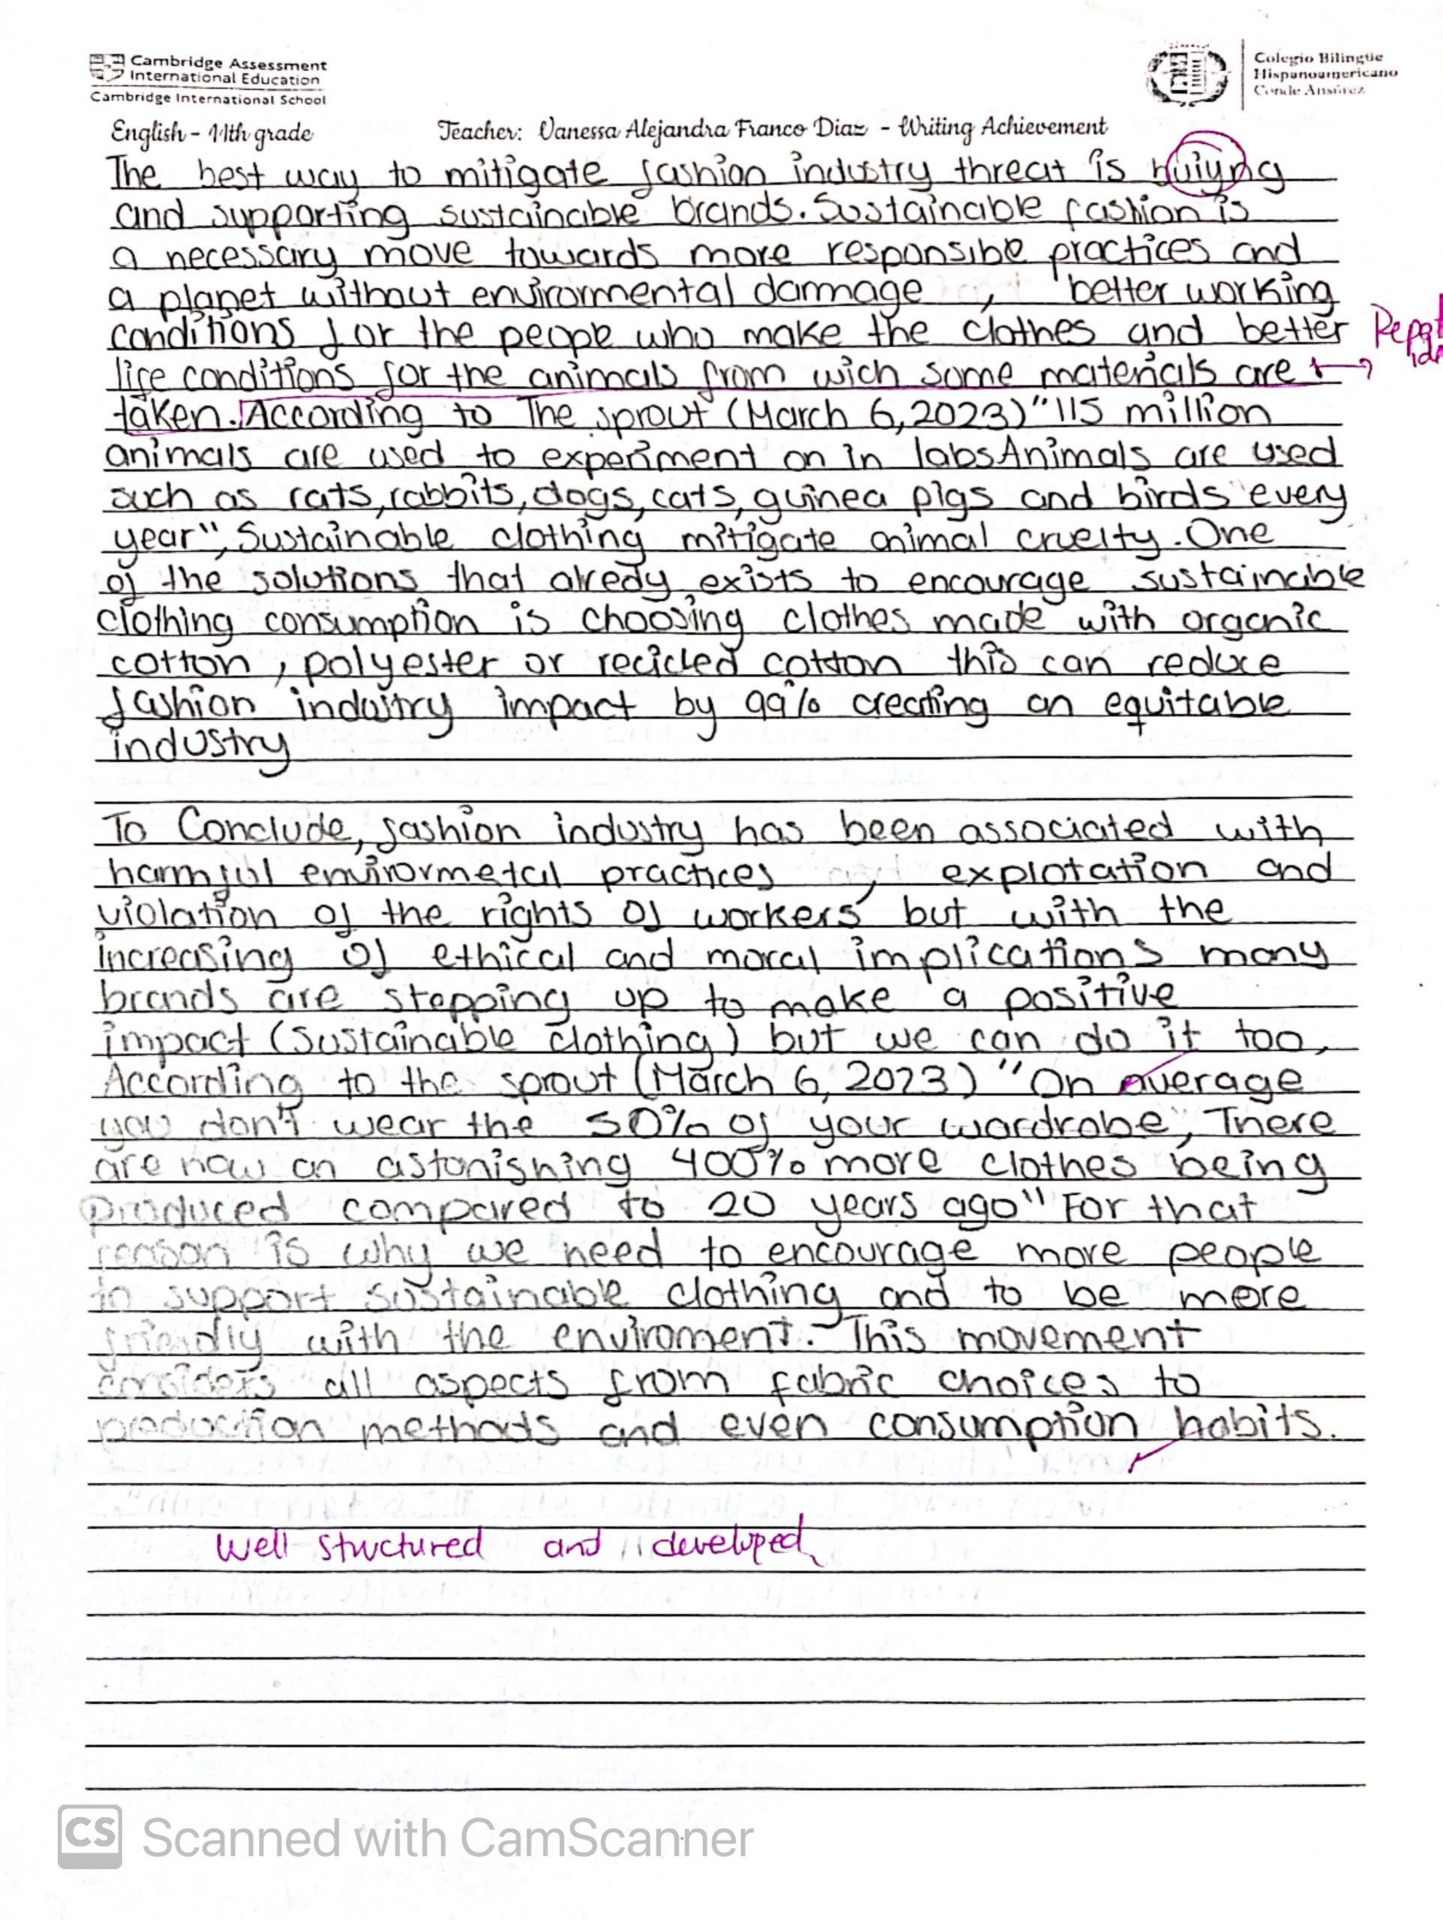 Cambridge Assessment
International Education
Cambridge International School
Colegio Bilingüe
Hispanoamericano
Conde Ansúrez
English - 11th grade Teacher: Vanessa Alejandra Franco Diaz - Writing Achievement
The best way to mitigate fashion industry threat is buiyng
and supporting sustainable brands. Sustainable fashion is
a necessary move towards more responsible practices and
a planet without envirormental dammage , better working
conditions for the peope who make the clothes and better
life conditions for the animals from wich some materials are
taken. According to The sprout (March 6, 2023) "115 million
animals are used to experiment on in labs Animals are used
such as rats, rabbits, dogs, cats, guinea pigs and birds every
year", Sustainable clothing mitigate animal cruelty. One
of the solutions that alredy exists to encourage sustainable
clothing consumption is choosing clothes made with organic
cotton, polyester or recicled cotton this can reduce
fashion industry impact by 99% creating an equitable
industry
To Conclude, fashion industry has been associated with
harmful envirormetal practices , explotation and
violation of the rights of workers but with the
increasing of ethical and moral implications many
brands are stepping up to make a positive
impact (Sustainable clothing) but we can do it too,
According to the sprout (March 6, 2023) "On average
you don't wear the 50% of your wardrobe", There
are now an astonishing 400% more clothes being
produced compared to 20 years ago" For that
reason is why we need to encourage more people
to support sustainable clothing and to be more
friendly with the enviroment. This movement
considers all aspects from fabric choices to
production methods and even consumption habits.
Well structured and developed
CS Scanned with CamScanner